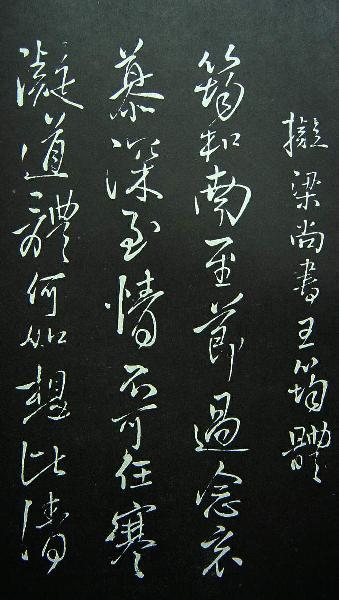 擬梁尚書王筠體
筠和南至節過念哀
慕深至情不可任寒
凝道體何如想比清